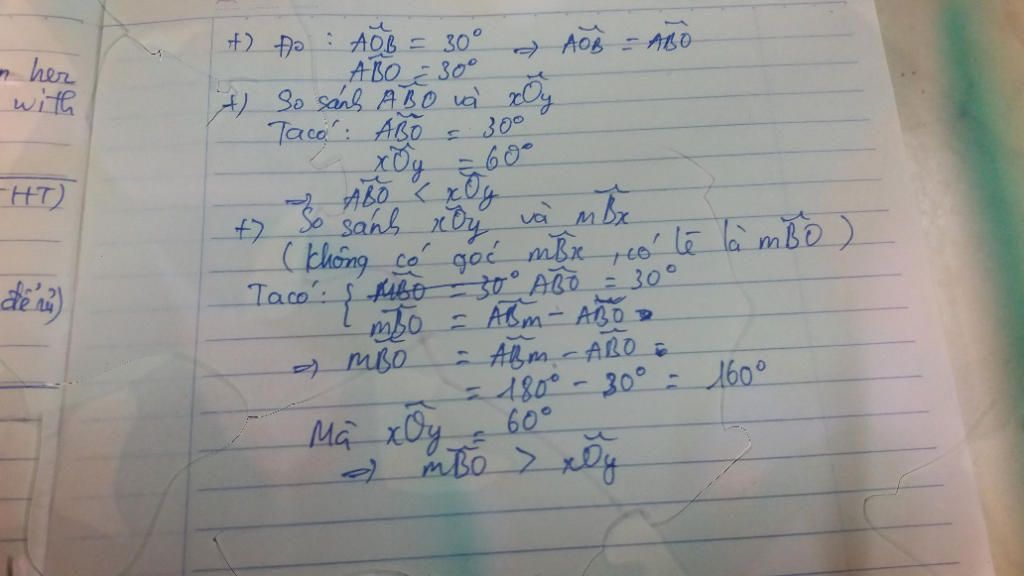 n her
with
HT)
điền)
+) Đo : AÔB = 30° => AÔB = AB̂O
AB̂O = 30°
+) So sánh AB̂O và xÔy
Ta có: AB̂O = 30°
xÔy = 60°
=> AB̂O < xÔy
+) So sánh xÔy và mB̂x
(không có góc mB̂x, có lẽ là mB̂O)
Ta có: { MB̂O = 30° AB̂O = 30°
mB̂O = AB̂m - AB̂O
=> mB̂O = AB̂m - AB̂O =
= 180° - 30° = 160°
Mà xÔy = 60°
=> mB̂O > xÔy